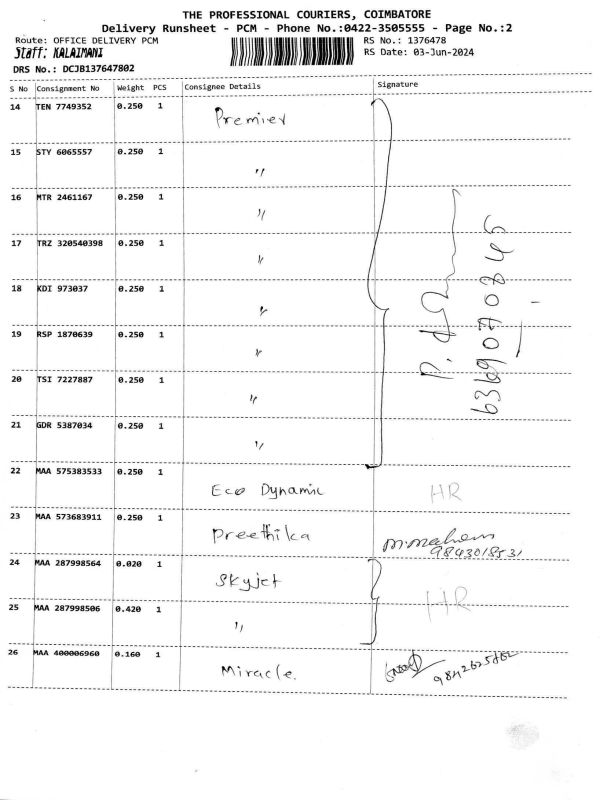 THE PROFESSIONAL COURIERS, COIMBATORE
Delivery Runsheet - PCM - Phone No.:0422-3505555 - Page No.:2
Route: OFFICE DELIVERY PCM
RS No.: 1376478
Staff: KALAIMANI
RS Date: 03-Jun-2024
DRS No.: DCJB137647802
S No Consignment No Weight PCS Consignee Details Signature
14 TEN 7749352 0.250 1 Premier
15 STY 6065557 0.250 1 〃
16 MTR 2461167 0.250 1 〃
17 TRZ 320540398 0.250 1 〃
18 KDI 973037 0.250 1 〃
19 RSP 1870639 0.250 1 〃
20 TSI 7227887 0.250 1 〃
21 GDR 5387034 0.250 1 〃
22 MAA 575383533 0.250 1 Eco Dynamic HR
23 MAA 573683911 0.250 1 Preethika
9843018531
24 MAA 287998564 0.020 1 Skyjet HR
25 MAA 287998506 0.420 1 〃
26 MAA 400006960 0.160 1 Miracle.